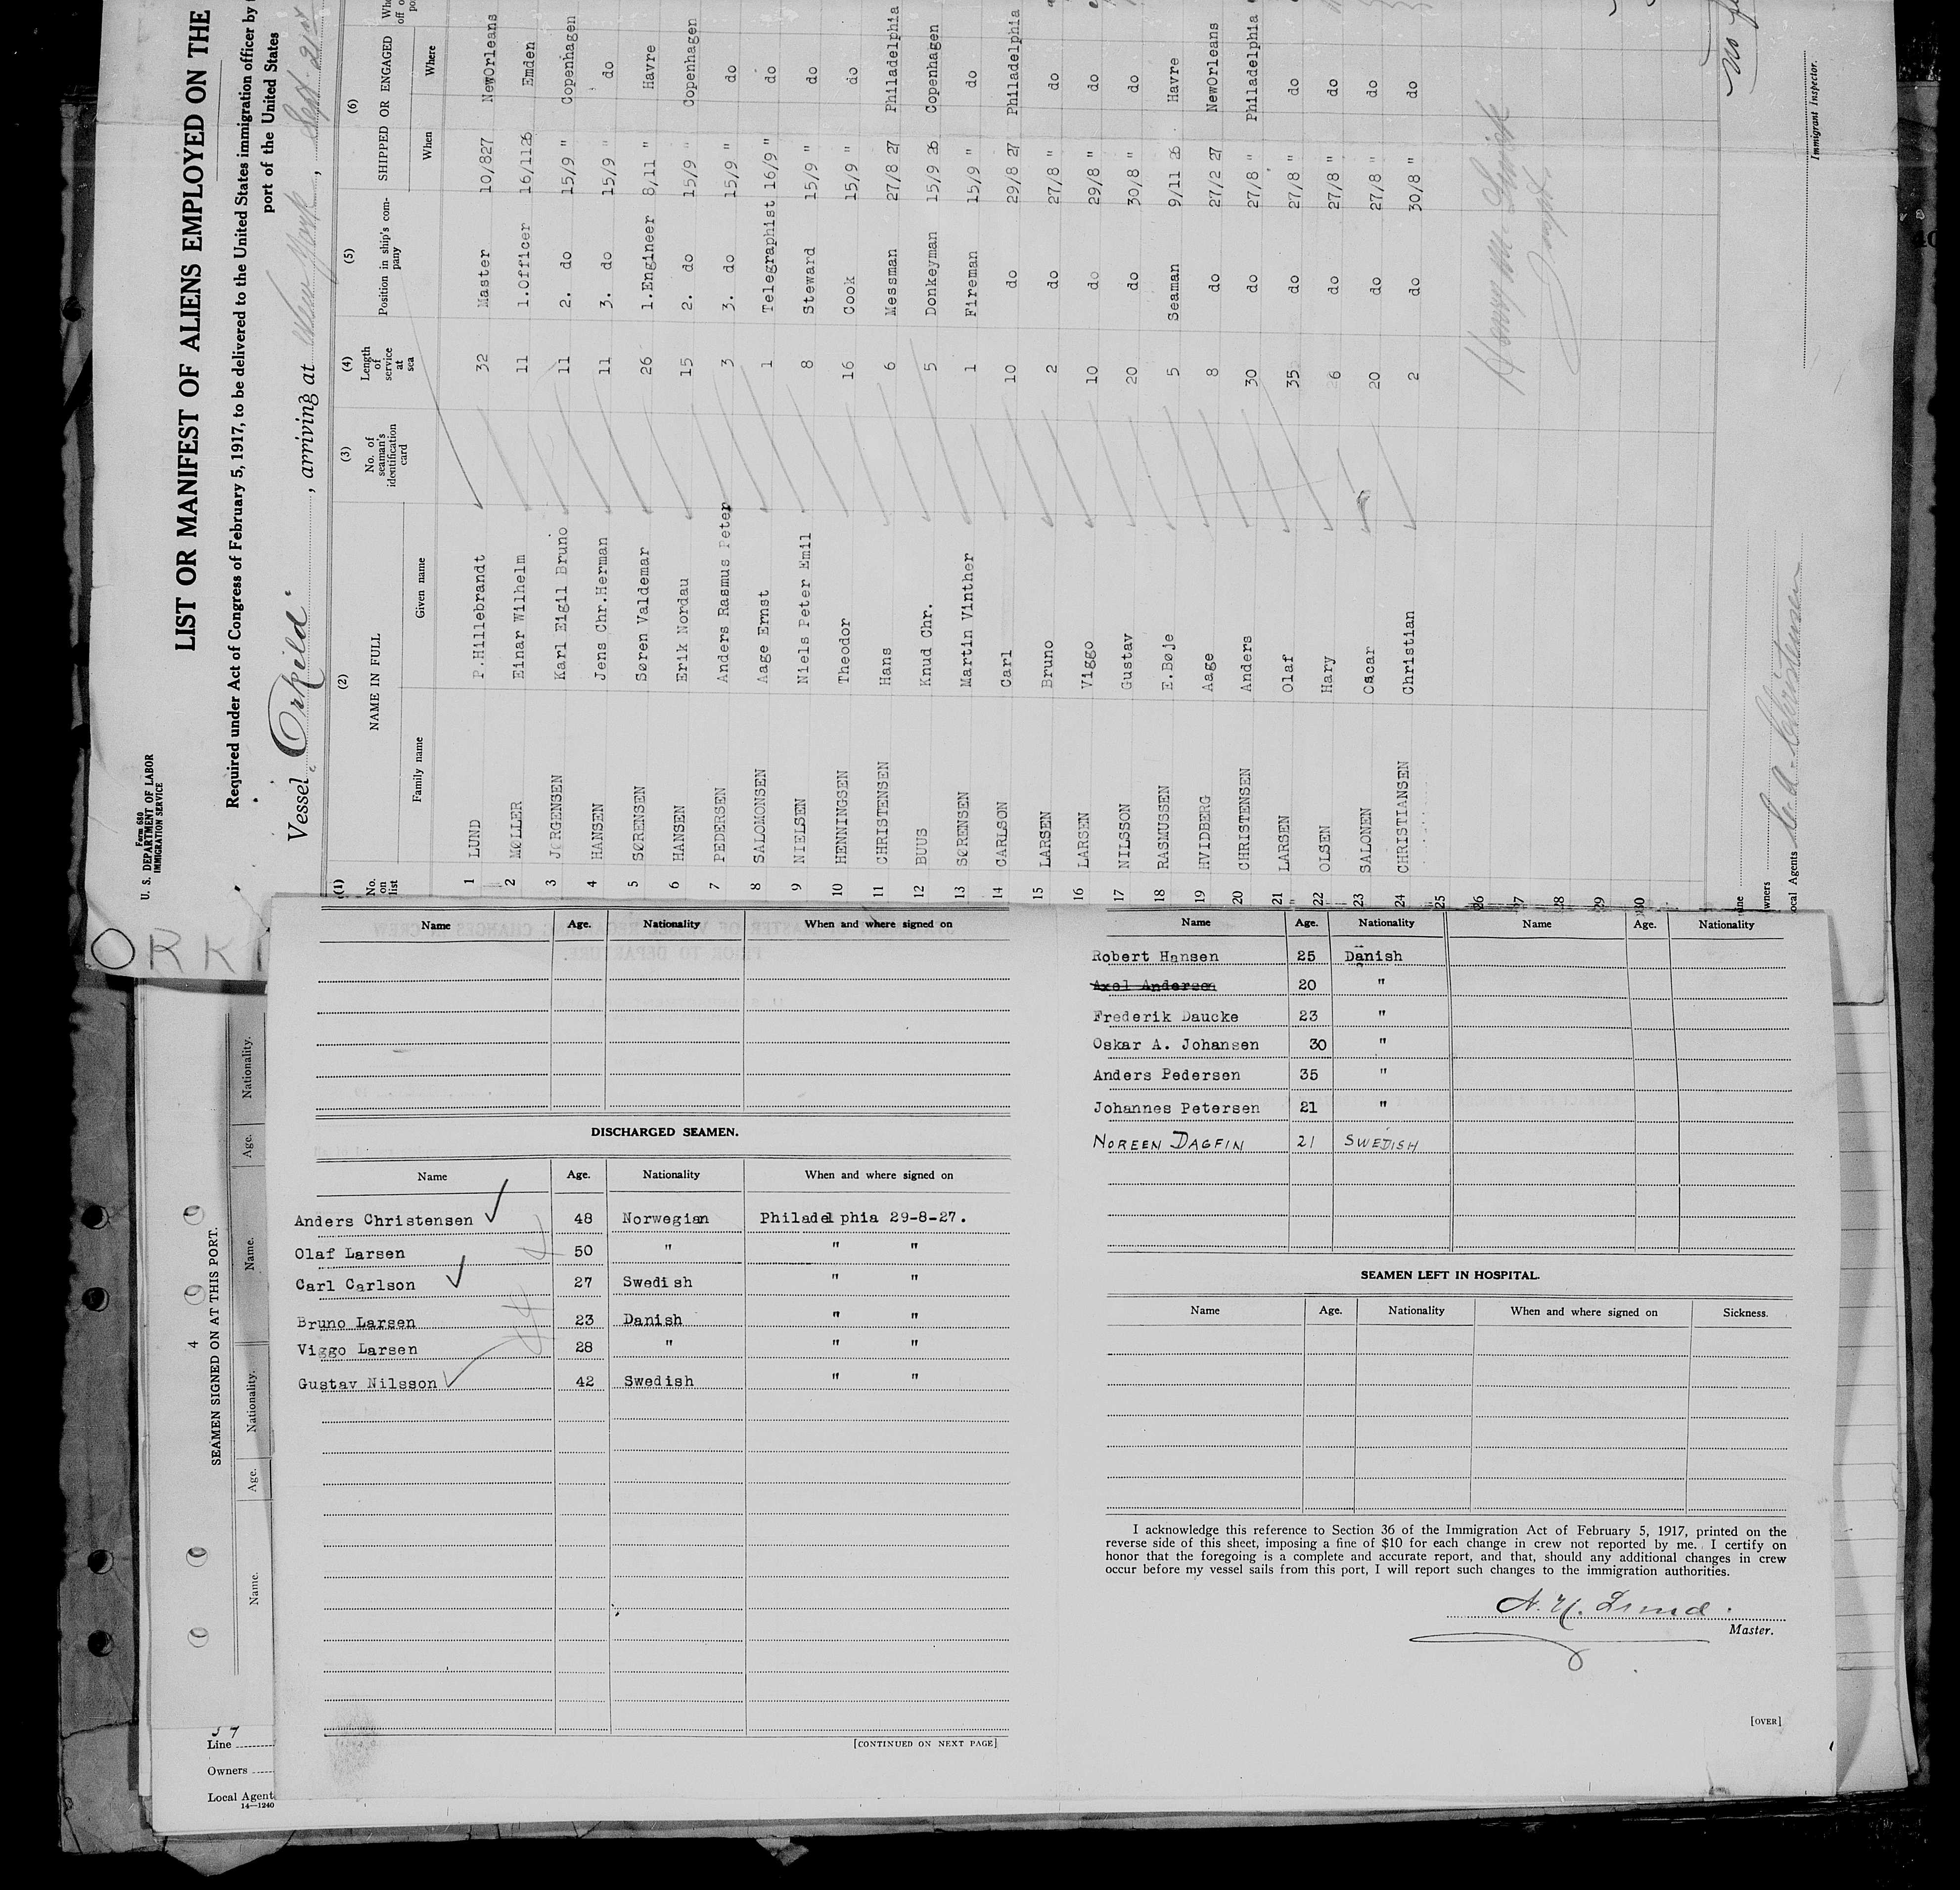 Form 680
U. S. DEPARTMENT OF LABOR
IMMIGRATION SERVICE
LIST OR MANIFEST OF ALIENS EMPLOYED ON THE
Required under Act of Congress of February 5, 1917, to be delivered to the United States immigration officer by
port of the United States
Vessel "Orkild", arriving at New York, Sept. 21st
(1) (2) (3) (4) (5) (6)
No. on list NAME IN FULL No. of seaman's identification card Length of service at sea Position in ship's company SHIPPED OR ENGAGED
Family name Given name When Where
1 LUND P.Hillebrandt 32 Master 10/827 NewOrleans
2 MØLLER Einar Wilhelm 11 1.Officer 16/1126 Emden
3 JØRGENSEN Karl Eigil Bruno 11 2. do 15/9 " Copenhagen
4 HANSEN Jens Chr.Herman 11 3. do 15/9 " do
5 SØRENSEN Søren Valdemar 26 1.Engineer 8/11 " Havre
6 HANSEN Erik Nordau 15 2. do 15/9 " Copenhagen
7 PEDERSEN Anders Rasmus Peter 3 3. do 15/9 " do
8 SALOMONSEN Aage Ernst 1 Telegraphist 16/9 " do
9 NIELSEN Niels Peter Emil 8 Steward 15/9 " do
10 HENNINGSEN Theodor 16 Cook 15/9 " do
11 CHRISTENSEN Hans 6 Messman 27/8 27 Philadelphia
12 BUUS Knud Chr. 5 Donkeyman 15/9 26 Copenhagen
13 SØRENSEN Martin Vinther 1 Fireman 15/9 " do
14 CARLSON Carl 10 do 29/8 27 Philadelphia
15 LARSEN Bruno 2 do 27/8 " do
16 LARSEN Viggo 10 do 29/8 " do
17 NILSSON Gustav 20 do 30/8 " do
18 RASMUSSEN E.Bøje 5 Seaman 9/11 26 Havre
19 HVIDBERG Aage 8 do 27/2 27 NewOrleans
20 CHRISTENSEN Anders 30 do 27/8 " Philadelphia
21 LARSEN Olaf 35 do 27/8 " do
22 OLSEN Hary 6 do 27/8 " do
23 SALONEN Oscar 20 do 27/8 " do
24 CHRISTIANSEN Christian 2 do 30/8 " do
25
26
27
28
29
30
Immigrant Inspector.
Owners
Local Agents
ORKI
Name Age. Nationality When and where signed on
DISCHARGED SEAMEN.
Name Age. Nationality When and where signed on
Anders Christensen 48 Norwegian Philadelphia 29-8-27.
Olaf Larsen 50 " " "
Carl Carlson 27 Swedish " "
Bruno Larsen 23 Danish " "
Viggo Larsen 28 " " "
Gustav Nilsson 42 Swedish " "
[CONTINUED ON NEXT PAGE]
Name Age. Nationality Name Age. Nationality
Robert Hansen 25 Danish
Axel Andersen 20 "
Frederik Daucke 23 "
Oskar A. Johansen 30 "
Anders Pedersen 35 "
Johannes Petersen 21 "
NOREEN DAGFIN 21 SWEDISH
SEAMEN LEFT IN HOSPITAL.
Name Age. Nationality When and where signed on Sickness.
I acknowledge this reference to Section 36 of the Immigration Act of February 5, 1917, printed on the
reverse side of this sheet, imposing a fine of $10 for each change in crew not reported by me. I certify on
honor that the foregoing is a complete and accurate report, and that, should any additional changes in crew
occur before my vessel sails from this port, I will report such changes to the immigration authorities.
Master.
[OVER]
SEAMEN SIGNED ON AT THIS PORT.
Name. Age. Nationality. Name. Age. Nationality.
4
Line
Owners
Local Agent
14—1240